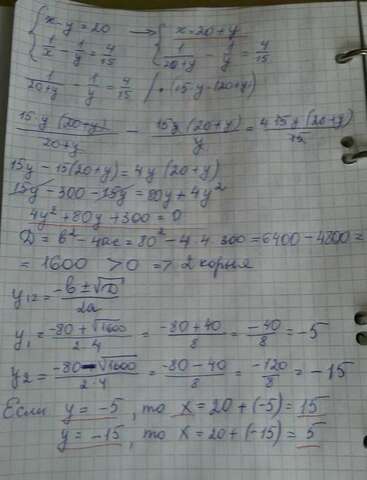 {x-y=20 → {x=20+y
{1/x - 1/y = 4/15 {1/(20+y) - 1/y = 4/15
1/(20+y) - 1/y = 4/15 / ·(15·y·(20+y))
15·y(20+y)/(20+y) - 15y(20+y)/y = 4·15y(20+y)/15
15y-15(20+y)=4y(20+y)
15y-300-15y=80y+4y²
4y²+80y+300=0
D=b²-4ac=80²-4·4·300=6400-4800=
=1600 >0 => 2 корня
y₁,₂=(-b±√D)/2a
y₁=(-80+√1600)/(2·4)=(-80+40)/8=-40/8=-5
y₂=(-80-√1600)/(2·4)=(-80-40)/8=-120/8=-15
Если y=-5, то x=20+(-5)=15
y=-15, то x=20+(-15)=5